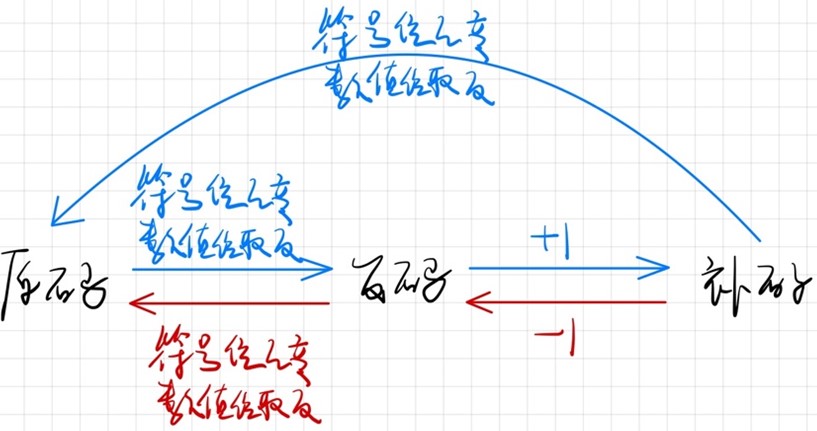 符号位不变
数值位取反
符号位不变
数值位取反
+1
原码
反码
补码
-1
符号位不变
数值位取反